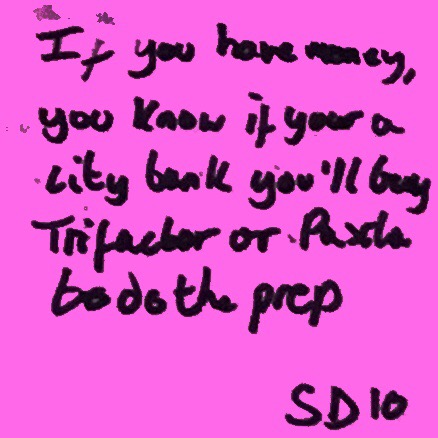 If you have money,
you know if your a
city bank you'll buy
Trifactor or Paxda
to do the prep
SD10